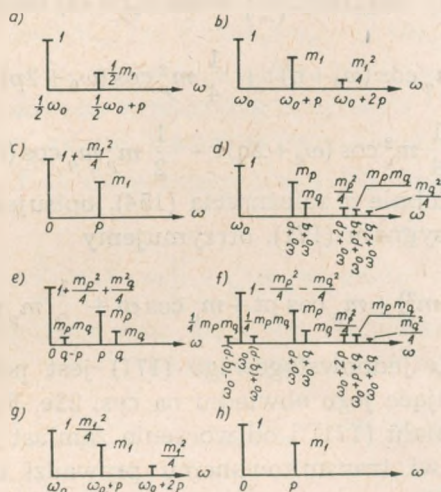 a)
1
½m₁
½ω₀
½ω₀+p
ω
b)
1
m₁
m₁²/4
ω₀
ω₀+p
ω₀+2p
ω
c)
1+m₁²/4
m₁
0
p
ω
d)
1
mp
mq
mp²/4
mpmq
mq²/4
ω₀
ω₀+p
ω₀+q
ω₀+2p
ω₀+p+q
ω₀+2q
ω
e)
1+mp²/4+mq²/4
mpmq
mp
mq
0
q-p
p
q
ω
f)
1-mp²/4-mq²/4
¼mpmq
¼mpmq
mp
mq
mp²/4
mpmq
mq²/4
ω₀-(q-p)
ω₀
ω₀+(q-p)
ω₀+p
ω₀+q
ω₀+2p
ω₀+p+q
ω₀+2q
ω
g)
1 m₁²/4
m₁
m₁²/4
ω₀
ω₀+p
ω₀+2p
ω
h)
1
m₁
0
p
ω